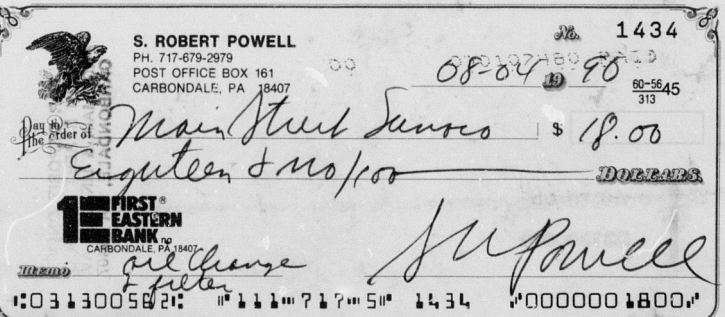 S. ROBERT POWELL
PH. 717-679-2979
POST OFFICE BOX 161
CARBONDALE, PA 18407
No. 1434
08-04 19 90
60-56 45
313
Pay to the order of Main Street Sunoco $ 18.00
Eighteen & no/100 DOLLARS
1E FIRST EASTERN BANK n.a.
CARBONDALE, PA 18407
Memo oil change & filter
S R Powell
⑆031300562⑆ ⑈111⑉717⑉5⑈ 1434 ⑈0000001800⑈